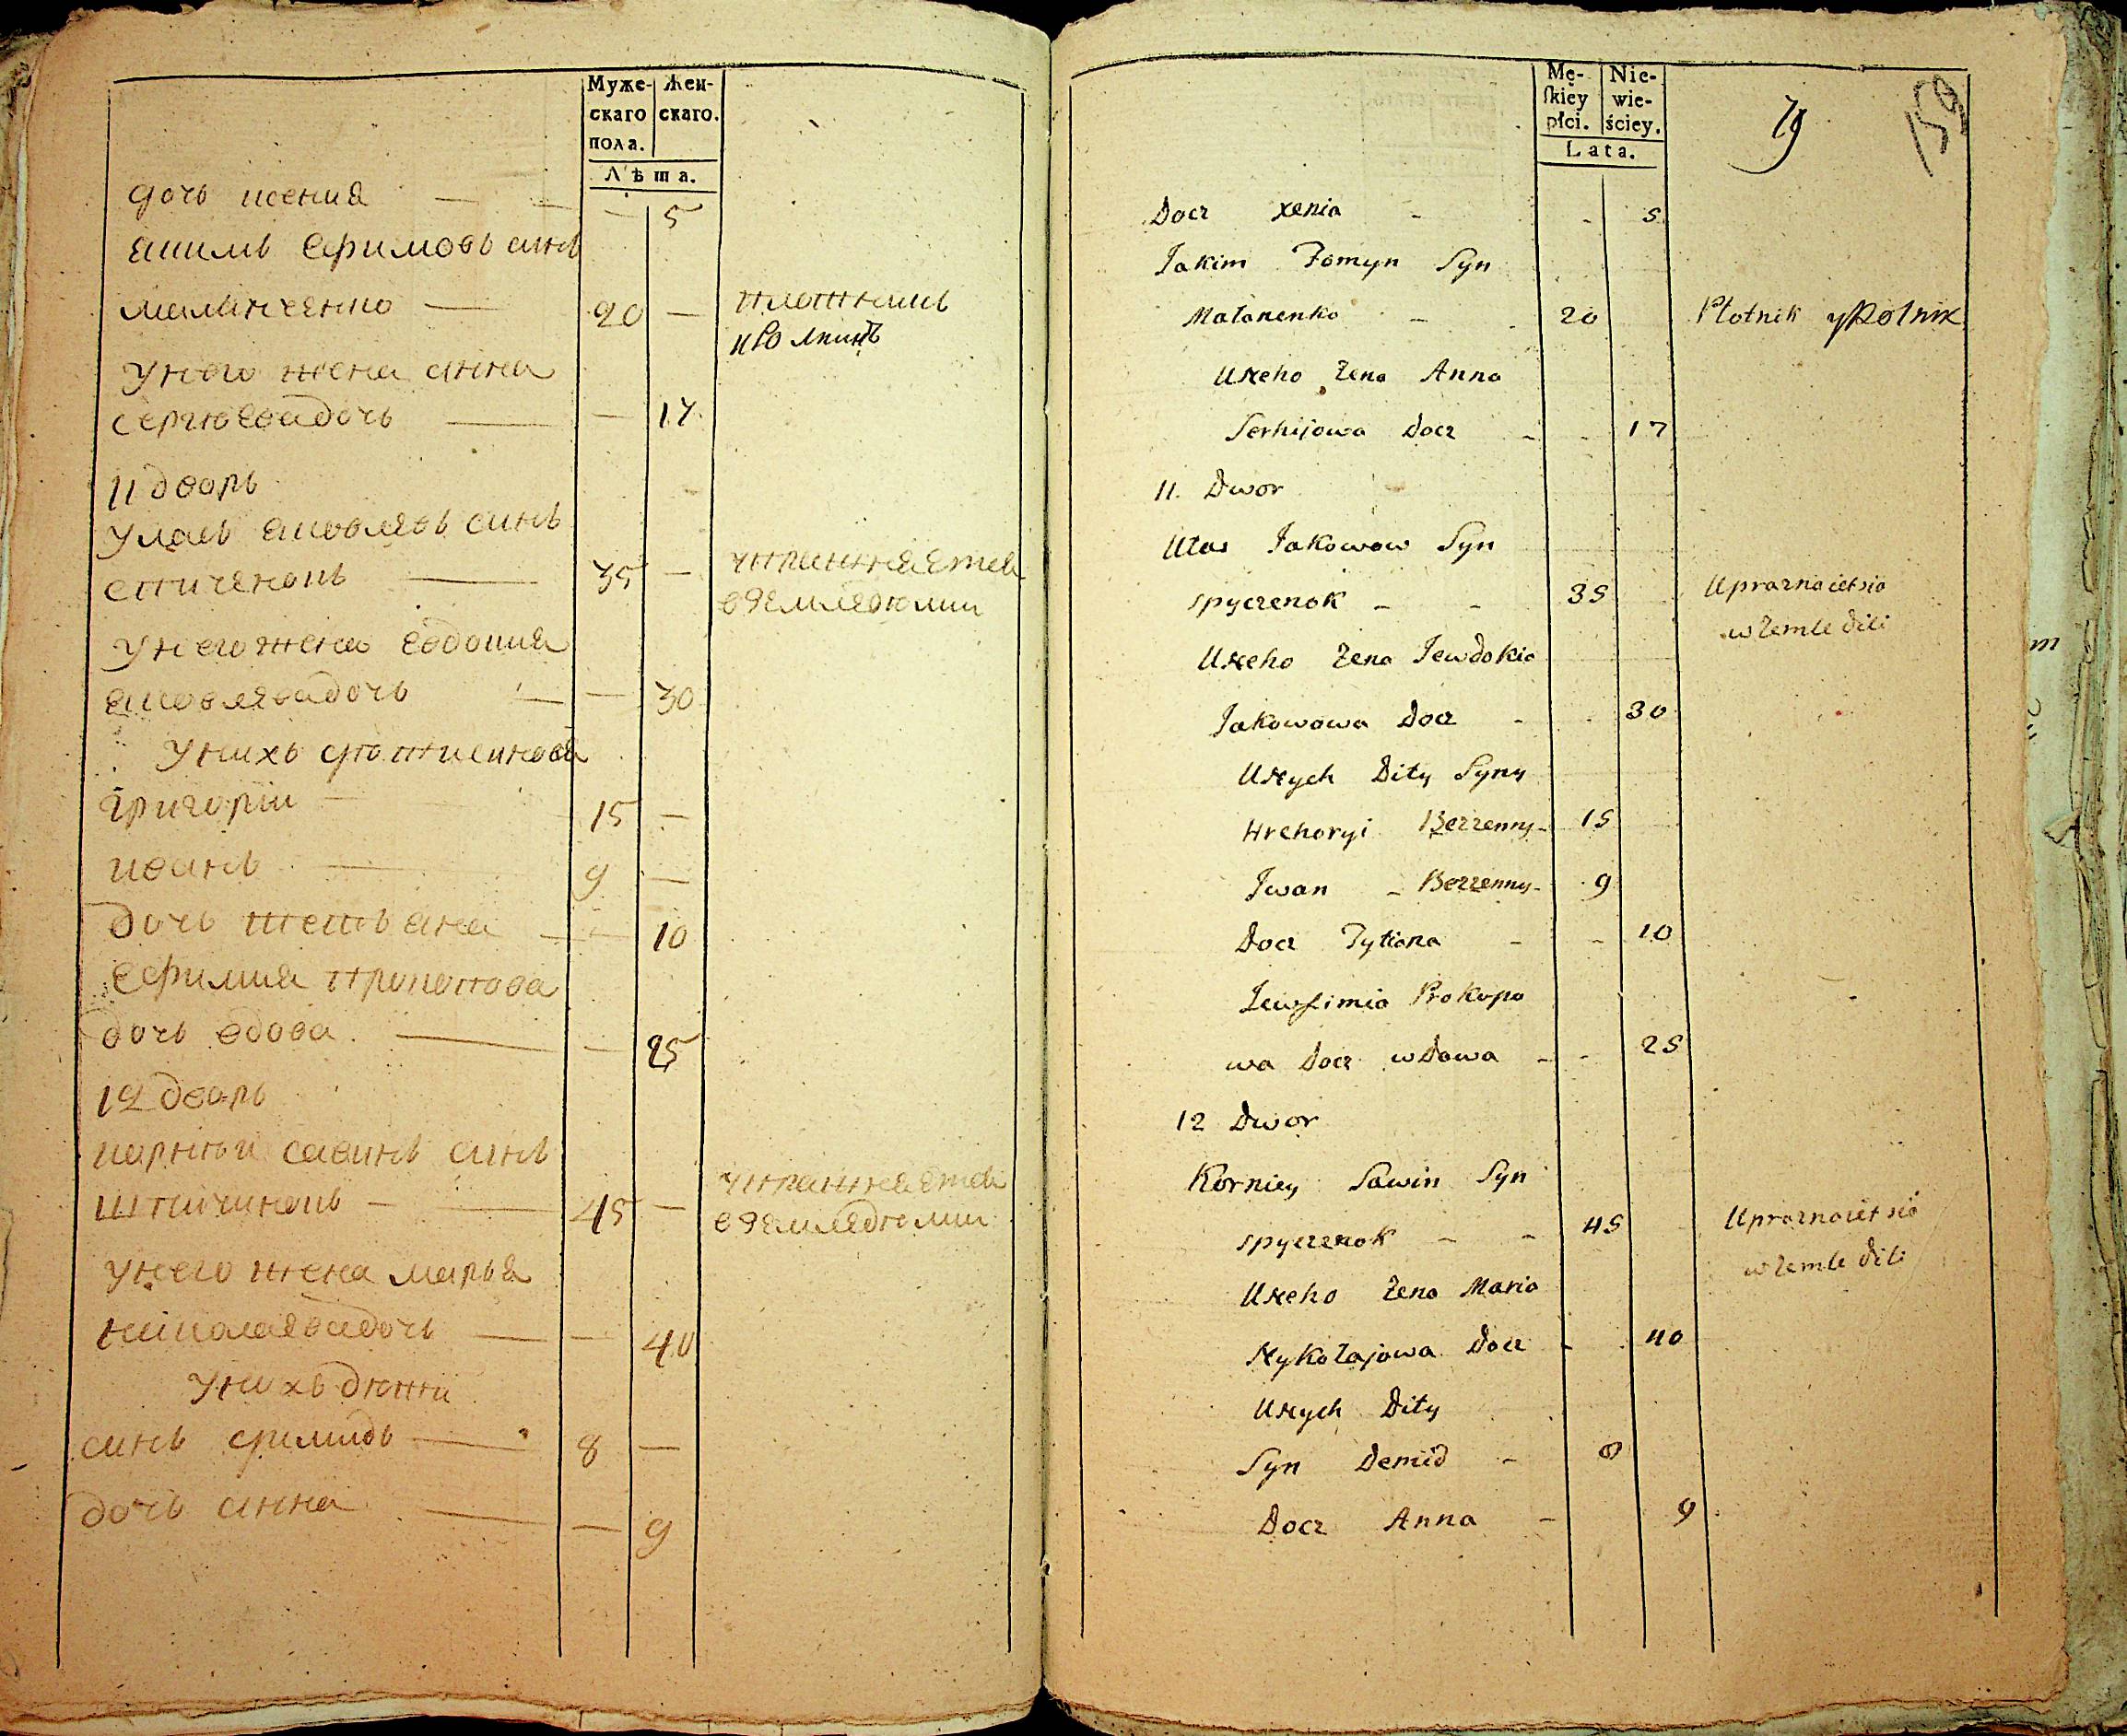 Муже-
скаго
пола.
Жен-
скаго.
Лѣта.
дочь ксения — — — 5
якимъ ефимовъ синъ
маланченко — 20 —
плотникъ
унего жена анна
сергюева дочь — — 17
11 дворь
улас яковлевъ синъ
спиченокъ — 35 —
упражняется
вземледюлии
унего жена евдокия
яковлева дочь — — 30
унихъ дюти синовя
григории — 15 —
иванъ — 9 —
дочь тетьяна — — 10
ефимия прокопова
дочь вдова — — 25
12 дворь
корньи савинъ синъ
шпичинокъ — 45 —
упражняется
вземледюлии
унего жена марья
николаева дочь — — 40
унихъ дюти
синъ димидъ — 8 —
дочь анна — — 9
Mę-
ſkiey
płci.
Nie-
wie-
ściey.
Lata.
79
Docz xenia - - 5
Jakim Fomyn Syn
Małanenko - 20
Płotnik y Rolnik
Uneho Zena Anna
Serhijowa Docz - - 17
11. Dwor
Ułas Jakowow Syn
spyczenok - - 35
Upraznaietsia
w Zemle dili
Uneho Zena Jewdokia
Jakowowa Docz - - 30
Unych Dity Syny
Hrehoryi Bezzenny - 15
Iwan - Bezzenny - 9
Docz Tytiana - - 10
Jewfimia Prokopo
wa Docz wdowa - - 25
12 Dwor
Korniey Sawin Syn
spyczenok - - 45
Upraznaietsia
w Zemle dili
Uneho Zena Maria
Nykołajowa Docz - 40
Unych Dity
Syn Demid - 8
Docz Anna - 9